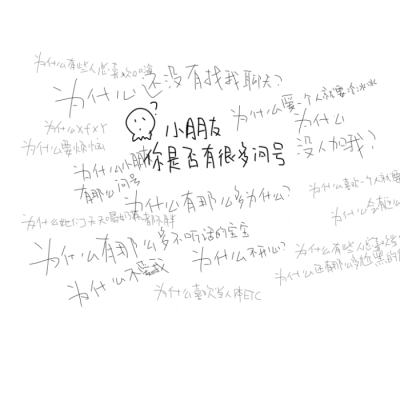 为什么有些人总喜欢
为什么还没有找我聊天?
为什么爱一个人就要冷冰冰
为什么xfxY
小朋友
为什么
为什么要烦恼
你是否有很多问号
没人加我?
为什么小朋友
有那么问号
为什么有那么多为什么?
为什么喜欢一个人就要
为什么她们天天喝奶茶都不胖
为什么会
为什么有那么多不听话的宝宝
为什么不开心?
为什么有些人总喜欢
为什么不爱我
为什么还有那么多
为什么喜欢当人体ETC